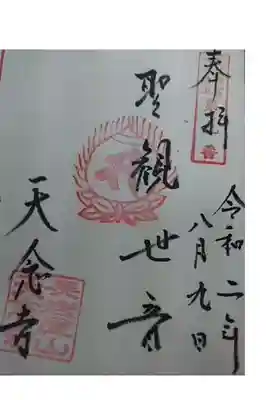 奉拝
令和二年
八月九日
聖観世音
天念寺